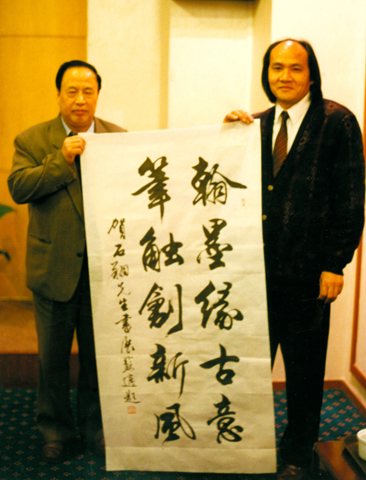 翰墨緣古意
筆触創新風
賀石翔先生書展蘇適題